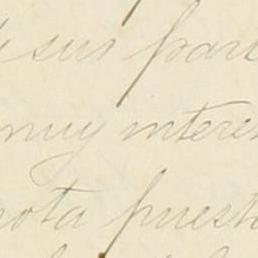 sus par
muy intere
nota puest